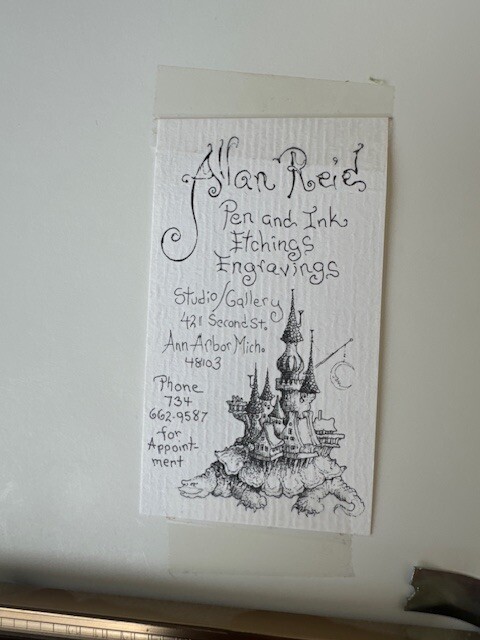 Allan Reid
Pen and Ink
Etchings
Engravings
Studio/Gallery
421 Second St.
Ann Arbor Mich.
48103
Phone
734
662-9587
for
Appoint-
ment